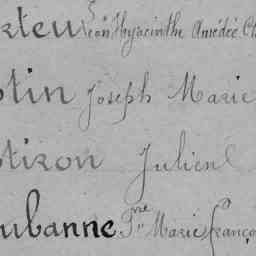 rteu Léon Hyacinthe Amédée Ch
otin Joseph Marie
otiron Julien
ubanne Pre Marie Franço